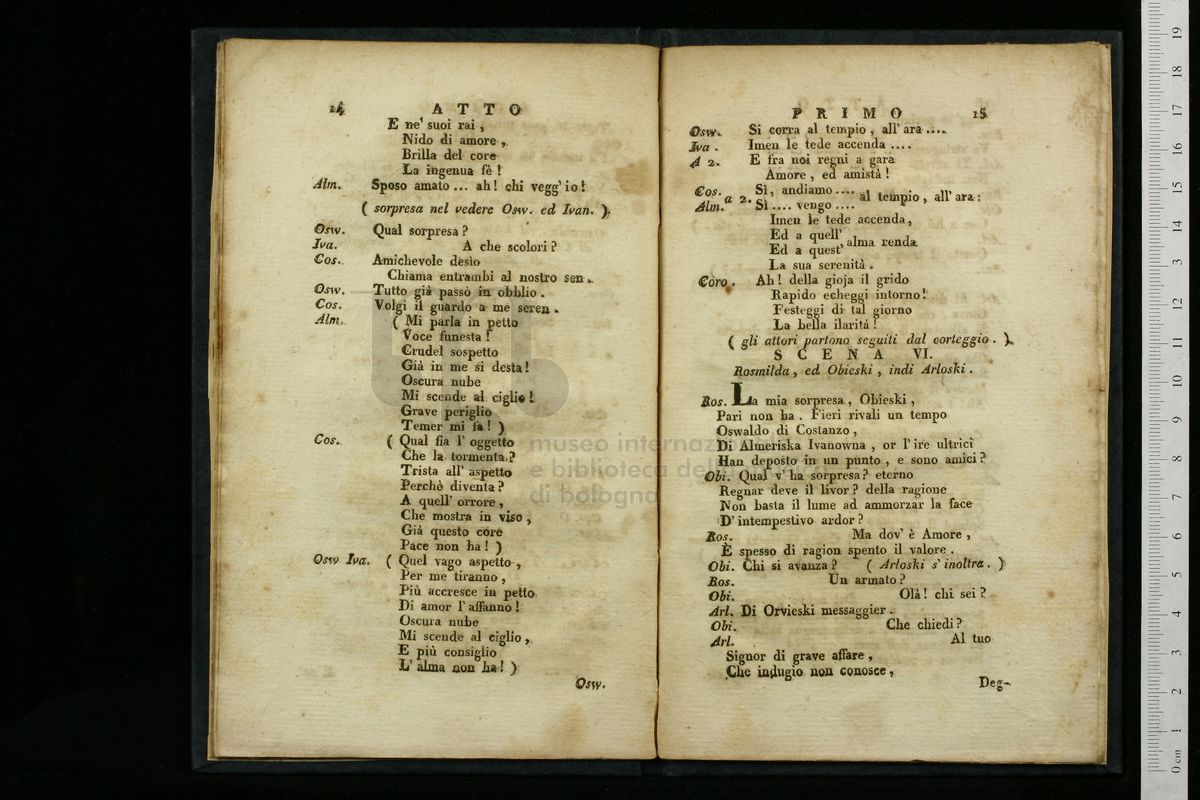 14 ATTO
E ne' suoi rai,
Nido di amore,
Brilla del core
La ingenua fè!
Alm. Sposo amato ... ah! chi vegg' io!
( sorpresa nel vedere Osw. ed Ivan. ).
Osw. Qual sorpresa?
Iva. A che scolori?
Cos. Amichevole desio
Chiama entrambi al nostro sen.
Osw. Tutto già passò in obblio.
Cos. Volgi il guardo a me seren.
Alm. ( Mi parla in petto
Voce funesta!
Crudel sospetto
Già in me si desta!
Oscura nube
Mi scende al ciglio!
Grave periglio
Temer mi fa! )
Cos. ( Qual fia l' oggetto
Che la tormenta?
Trista all' aspetto
Perchè diventa?
A quell' orrore,
Che mostra in viso,
Già questo core
Pace non ha! )
Osw Iva. ( Quel vago aspetto,
Per me tiranno,
Più accresce in petto
Di amor l' affanno!
Oscura nube
Mi scende al ciglio,
E più consiglio
L' alma non ha! )
Osw.
PRIMO 15
Osw. Si corra al tempio, all' ara ....
Iva. Imen le tede accenda ....
A 2. E fra noi regni a gara
Amore, ed amistà!
Cos. Sì, andiamo ....
Alm. a 2. Sì .... vengo .... al tempio, all' ara:
Imen le tede accenda,
Ed a quell'
Ed a quest' alma renda
La sua serenità.
Coro. Ah! della gioja il grido
Rapido echeggi intorno!
Festeggi di tal giorno
La bella ilarità!
( gli attori partono seguiti dal corteggio. )
SCENA VI.
Rosmilda, ed Obieski, indi Arloski.
Ros. La mia sorpresa, Obieski,
Pari non ha. Fieri rivali un tempo
Oswaldo di Costanzo,
Di Almeriska Ivanowna, or l' ire ultrici
Han deposto in un punto, e sono amici?
Obi. Qual v' ha sorpresa? eterno
Regnar deve il livor? della ragione
Non basta il lume ad ammorzar la face
D' intempestivo ardor?
Ros. Ma dov' è Amore,
È spesso di ragion spento il valore.
Obi. Chi si avanza? ( Arloski s' inoltra. )
Ros. Un armato?
Obi. Olà! chi sei?
Arl. Di Orvieski messaggier.
Obi. Che chiedi?
Arl. Al tuo
Signor di grave affare,
Che indugio non conosce,
Deg-
museo internazionale
e biblioteca della musica
di bologna
0 cm 1 2 3 4 5 6 7 8 9 10 11 12 13 14 15 16 17 18 19